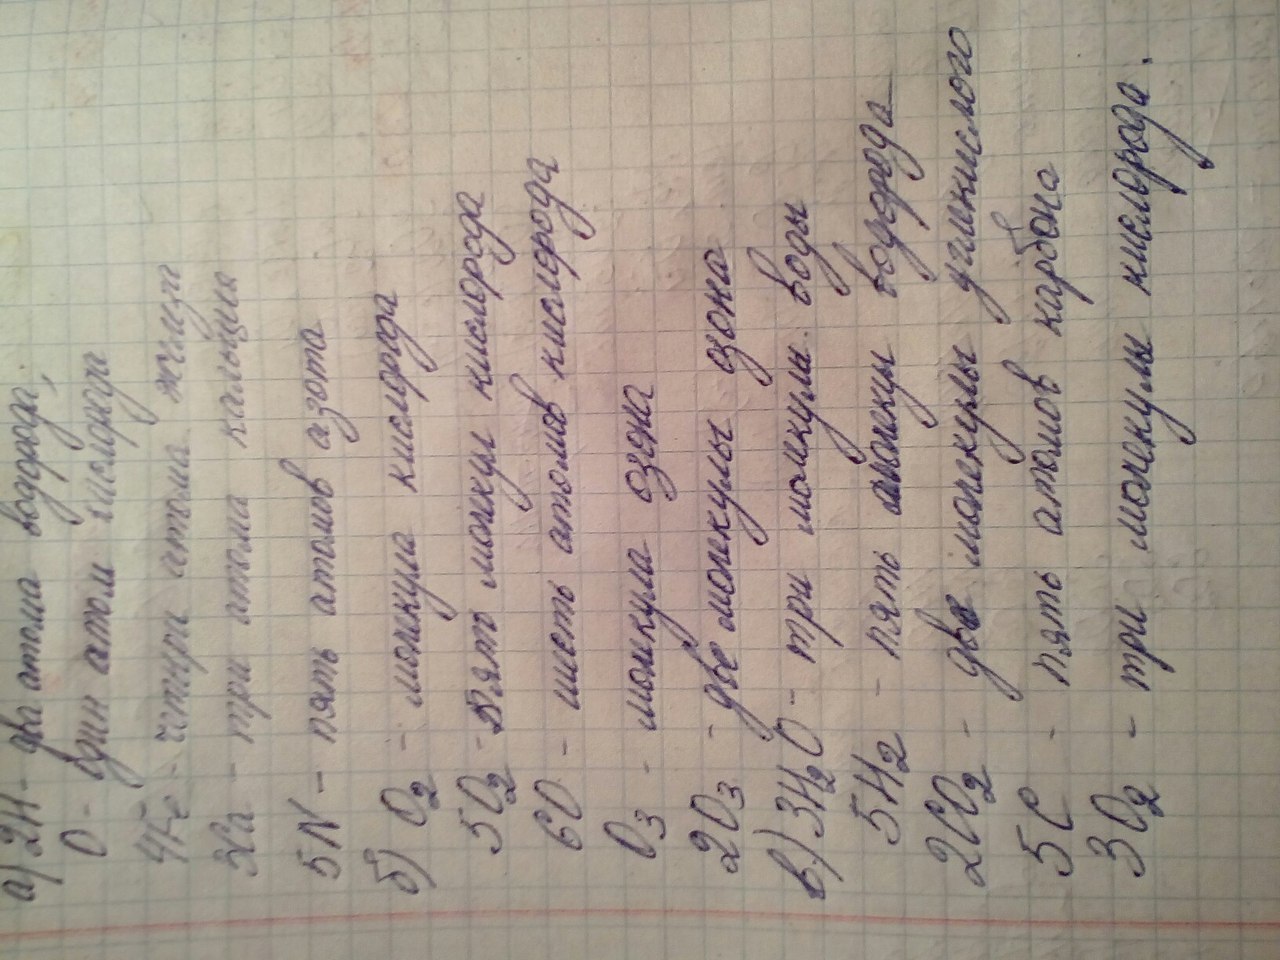 а) 2H - два атома водорода,
O - один атом кислорода
4Fe - четыре атома железа
3Ca - три атома кальция
5N - пять атомов азота
б) O₂ - молекула кислорода
5O₂ - пять молекул кислорода
6O - шесть атомов кислорода
O₃ - молекула озона
2O₃ - две молекулы озона
в) 3H₂O - три молекулы воды
5H₂ - пять молекул водорода
2CO₂ - две молекулы углекислого
5C - пять атомов карбона
3O₂ - три молекулы кислорода.